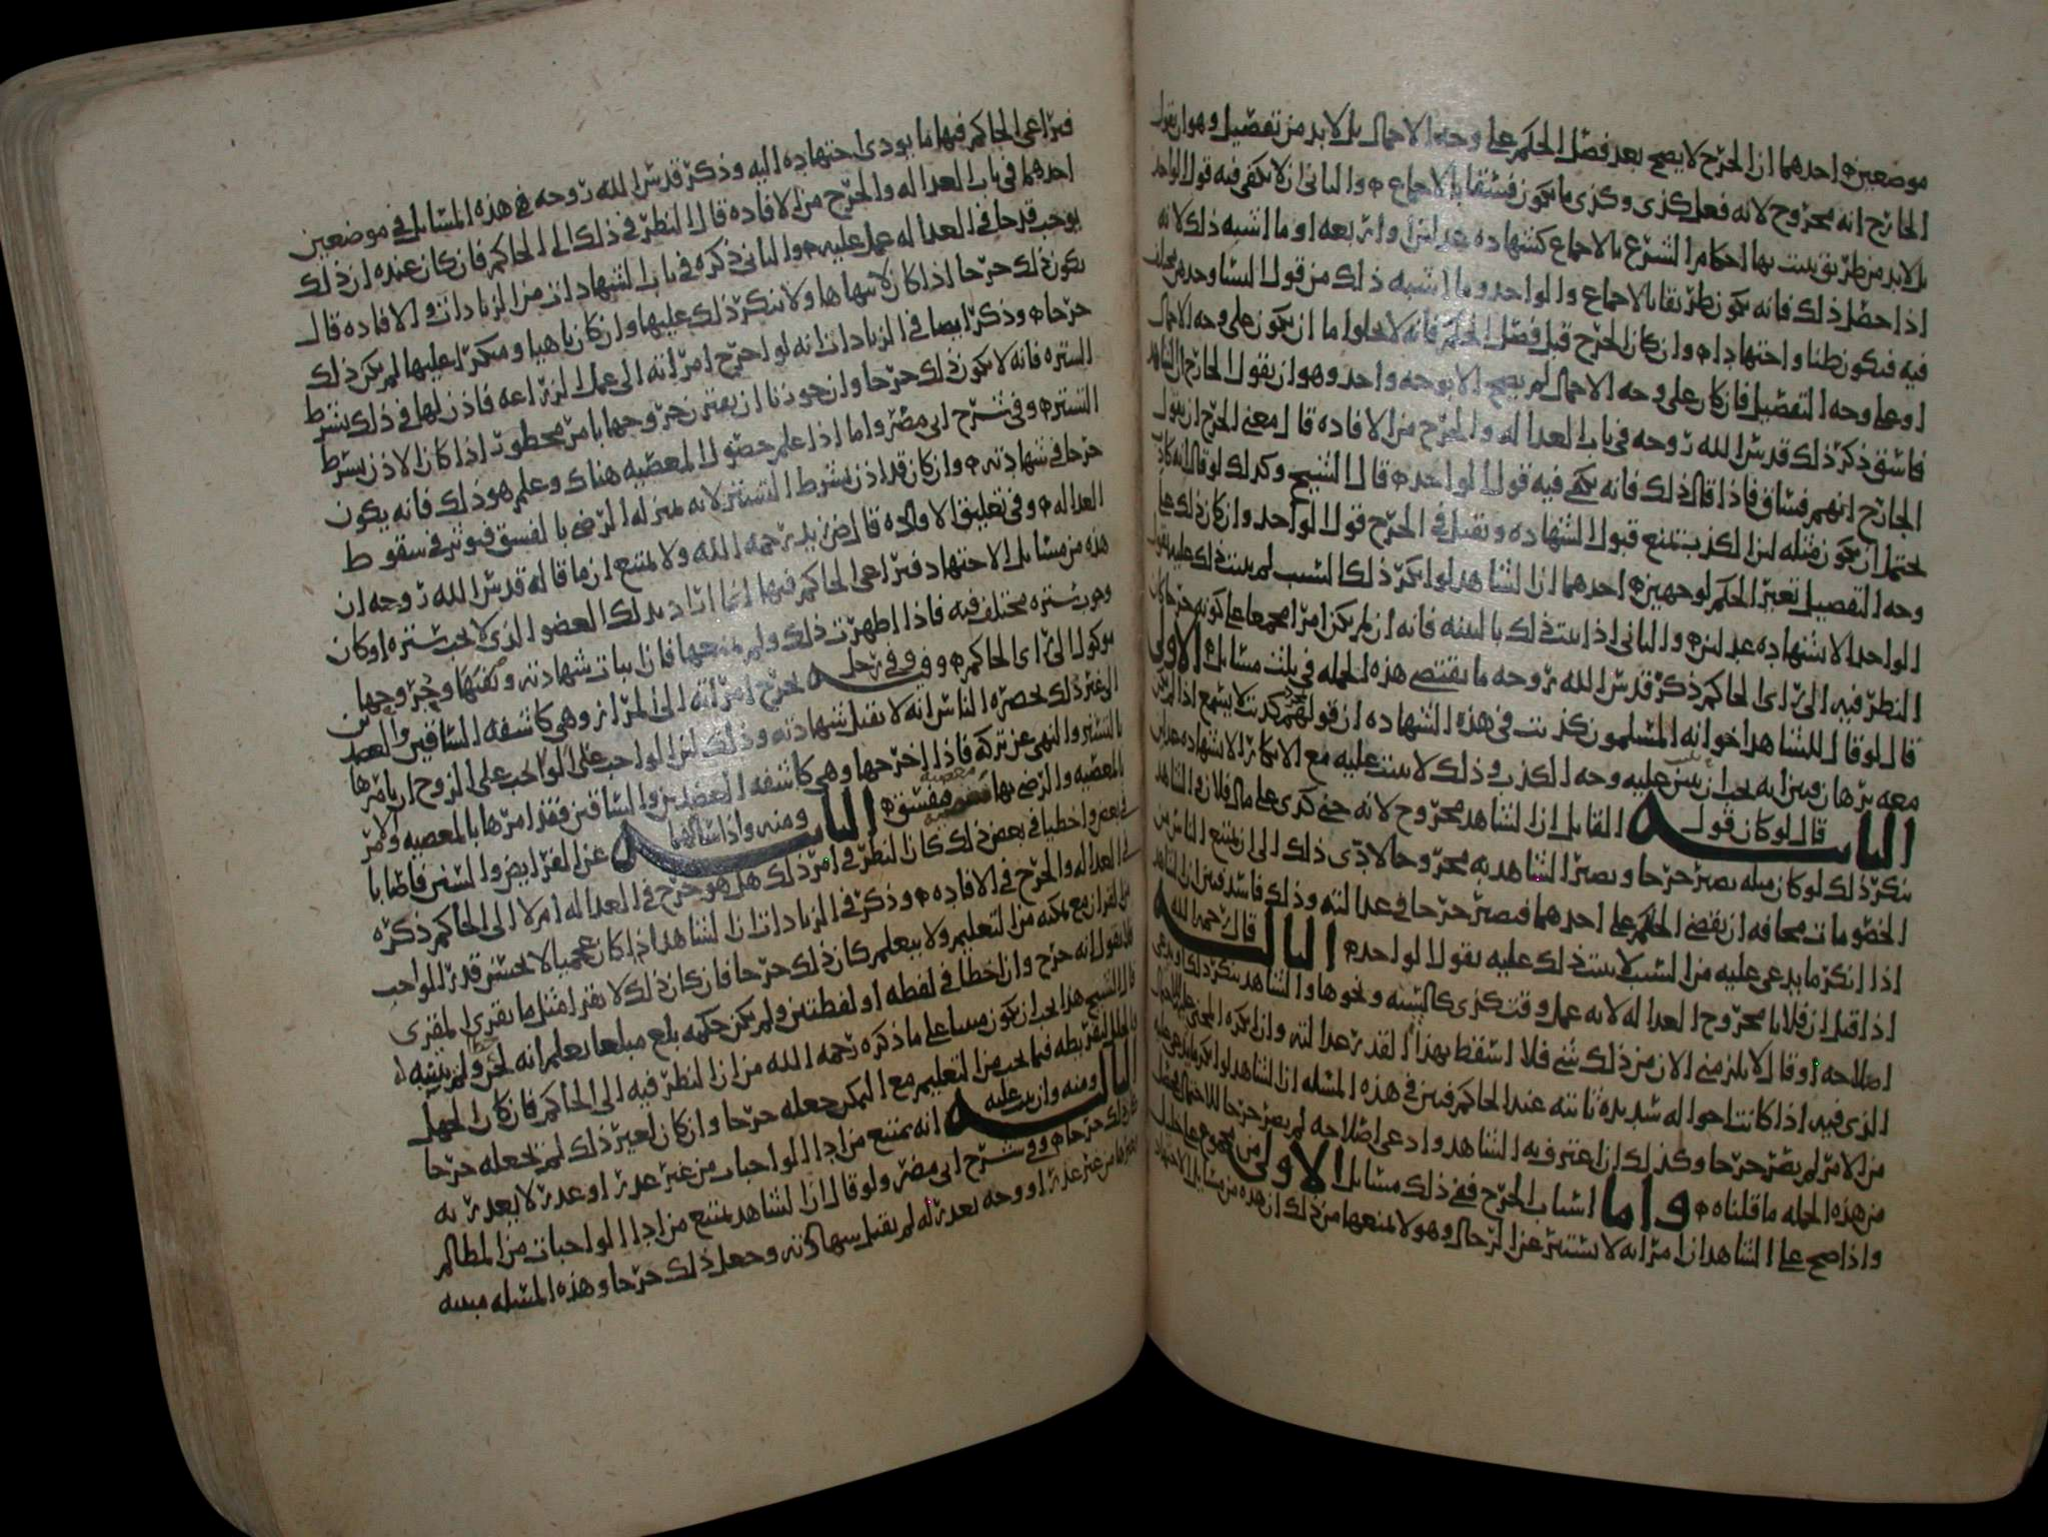 موضعين احدهما ان الجرح لا يصح بعد فصل الحكم على وجه الاجمال بل لا بد من تفصيل وهو ان يقول
الجارح انه مجروح لانه فعل كذى وكذى ما يكون فسقا بالاجماع والثانى ان لا يكفى فيه قول الواحد
بل لا بد من طريق يثبت بها احكام الشرع بالاجماع كشهادة عدلين او اربعة او ما اشبه ذلك لانه
اذا حصل ذلك فانه يكون طريقا بالاجماع والواحد وما اشبه ذلك من قول النسا وحدهن مختلف
فيه فيكون ظنا واجتهادا وان كان الجرح قبل فصل الحكم فانه لا يخلوا اما ان يكون على وجه الاجمال
او على وجه التفصيل فان كان على وجه الاجمال لم يصح الا بوجه واحد وهو ان يقول الجارح ان الشاهد
فاسق ذكر ذلك قدس الله روحه فى باب العدالة والجرح من الافادة قال معنى الجرح ان يقول
الجارح انهم فساق فاذا قال ذلك فانه يكفى فيه قول الواحد قال الشيخ وكذلك لو قال انه كاذب
يحتمل ان يكون مثله لان الكذب يمنع قبول الشهادة ويقبل فى الجرح قول الواحد وان كان ذلك على
وجه التفصيل تغير الحكم لوجهين احدهما ان الشاهد لو انكر ذلك السبب لم يثبت ذلك عليه بقول
الواحد الا بشهادة عدلين والثانى اذا ثبت ذلك بالبينة فانه ان لم يكن امرا مجمعا على كونه جرحا كان
النظر فيه الى راى الحاكم ذكر قدس الله روحه ما يقتضى هذه الجملة فى ثلث مسائل الاولى
قال لو قال للشاهد اخوانه المسلمون كذبت فى هذه الشهادة ان قولهم كذبت لا يسمع اذا لم يكن
معه برهان وبرانه يجب ان يبين عليه وجه الكذب وذلك لا يثبت عليه مع الانكار الا بشهادة عدلين
الثانيه قال لو كان قول القايل ان الشاهد مجروح لانه جنى كذى على مال فلان والشاهد
ينكر ذلك لو كان مثله يصير جرحا ويصير الشاهد به مجروحا لادى ذلك الى ان يمتنع الناس من
الخصومات مخافة ان يقضى الحكم على احدهما فيصير جرحا فى عدالته وذلك فاسد فبين ان الشاهد
اذا انكر ما يدعى عليه من السبب لا يثبت ذلك عليه بقول الواحد الثالثه قال رحمه الله
اذا قيل ان فلانا مجروح العدالة لانه عمل وقت كذى كالبينة ونحوها والشاهد ينكر ذلك او يدعى
اصلاحه او قال لا يلزمنى الان من ذلك شى فلا اسقط بهذا القدر عدالته وان انكره المجنى عليه للاحتمال
الذى فيه اذا كانت احواله شديدة ثابتة عند الحاكم فبين فى هذه المسئلة ان الشاهد لو انكر ما يدعى عليه
من الامر لم يصر جرحا وكذلك ان اعترف به الشاهد وادعى اصلاحه لم يصر جرحا للاحتمال فحصل
من هذه الجملة ما قلناه واما اسباب الجرح ففى ذلك مسائل الاولى من مجموع على خليل
واذا صح على الشاهد ان امراته لا تستتر عن الرجال وهو لا يمنعها من ذلك ان هذه من مسائل الاجتهاد
فيراعى الحاكم فيها ما يودى اجتهاده اليه وذكر قدس الله روحه فى هذه المسائل فى موضعين
احدهما فى باب العدالة والجرح من الافادة قال النظر فى ذلك الى الحاكم فان كان عنده ان ذلك
يوجب قدحا فى العدالة عمل عليه والثانى ذكره فى باب الشهادات من الزيادات والافادة قال
يكون ذلك جرحا اذا كان لا ينهاها ولا ينكر ذلك عليها وان كان ناهيا ومنكرا عليها لم يكن ذلك
جرحا وذكر ايضا فى الزيادات انه لو احرج امراته الى عمل الزراعة فاذن لها فى ذلك بشرط
السترة فانه لا يكون ذلك جرحا وان جوزنا ان يقترن بخروجها امر محظور اذا كان الاذن بشرط
التستر وفى شرح ابى مضر واما اذا علم حصول المعصية هناك وعلم هو ذلك فانه يكون
جرحا فى شهادته وان كان قد اذن بشرط التستر لانه بمنزلة الرضى بالفسق فيوثر فى سقوط
العدالة وفى تعليق الافادة قال ض زيد رحمه الله ولا يمتنع ان ما قاله قدس الله روحه ان
هذه من مسائل الاجتهاد فيراعى الحاكم فيها انما اراد بذلك العضو الذى لا يجب ستره او كان
وجوب ستره مختلف فيه فاذا اظهرت ذلك ولم يمنعها فان اثبات شهادته وخروجها
موكول الى راى الحاكم وفيه فى رجل يحرج امراته الى المزار وهى كاشفة الساقين والعضدين
الى غير ذلك بحضرة الناس انه لا تقبل شهادته وذلك لان الواجب على الزوج ان يامرها
بالتستر والنهى عن تركه فاذا اخرجها وهى كاشفة العضدين والساقين فقد امرها بالمعصية والامر
بالمعصية والرضى بها معصية مفسق الثانيه ومنه واذا سالهما عن الفرايض والسنن فاصابا
فى بعض واخطيا فى بعض ذلك كان النظر فى امر ذلك هل هو جرح فى العدالة ام لا الى الحاكم ذكره
فى العدالة والجرح فى الافادة وذكر فى الزيادات ان الشاهد اذا كان عجميا لا يحسن قدر الواجب
من القران مع تمكنه من التعليم ولا يتعلم كان ذلك جرحا فان كان ذلك لا يقرا مثل ما يقرى المقرى
فلا نقول انه جرح وان اخطا فى لفظة او لفظتين ولم يكن حكمه بلغ مبلغا يعلم انه لحن ولم يتنبه له
قال الشيخ هذا يجب ان يكون مبنيا على ما ذكره رحمه الله من ان النظر فيه الى الحاكم فان كان الجهل
بالخلل لتفريطه فيما يجب من التعليم مع التمكن جعله جرحا وان كان لغير ذلك لم يجعله جرحا
الثالثه ومنه وان ثبت عليه انه يمتنع من ادا الواجبات من غير عذر او عذر لا يعذر به
كان ذلك جرحا وفى شرح ابى مضر ولو قال ان الشاهد يمتنع من ادا الواجبات من المظالم
من غير عذر او وجه يعذر له لم يقبل شهادته وجعل ذلك جرحا وهذه المسئلة مبنيه